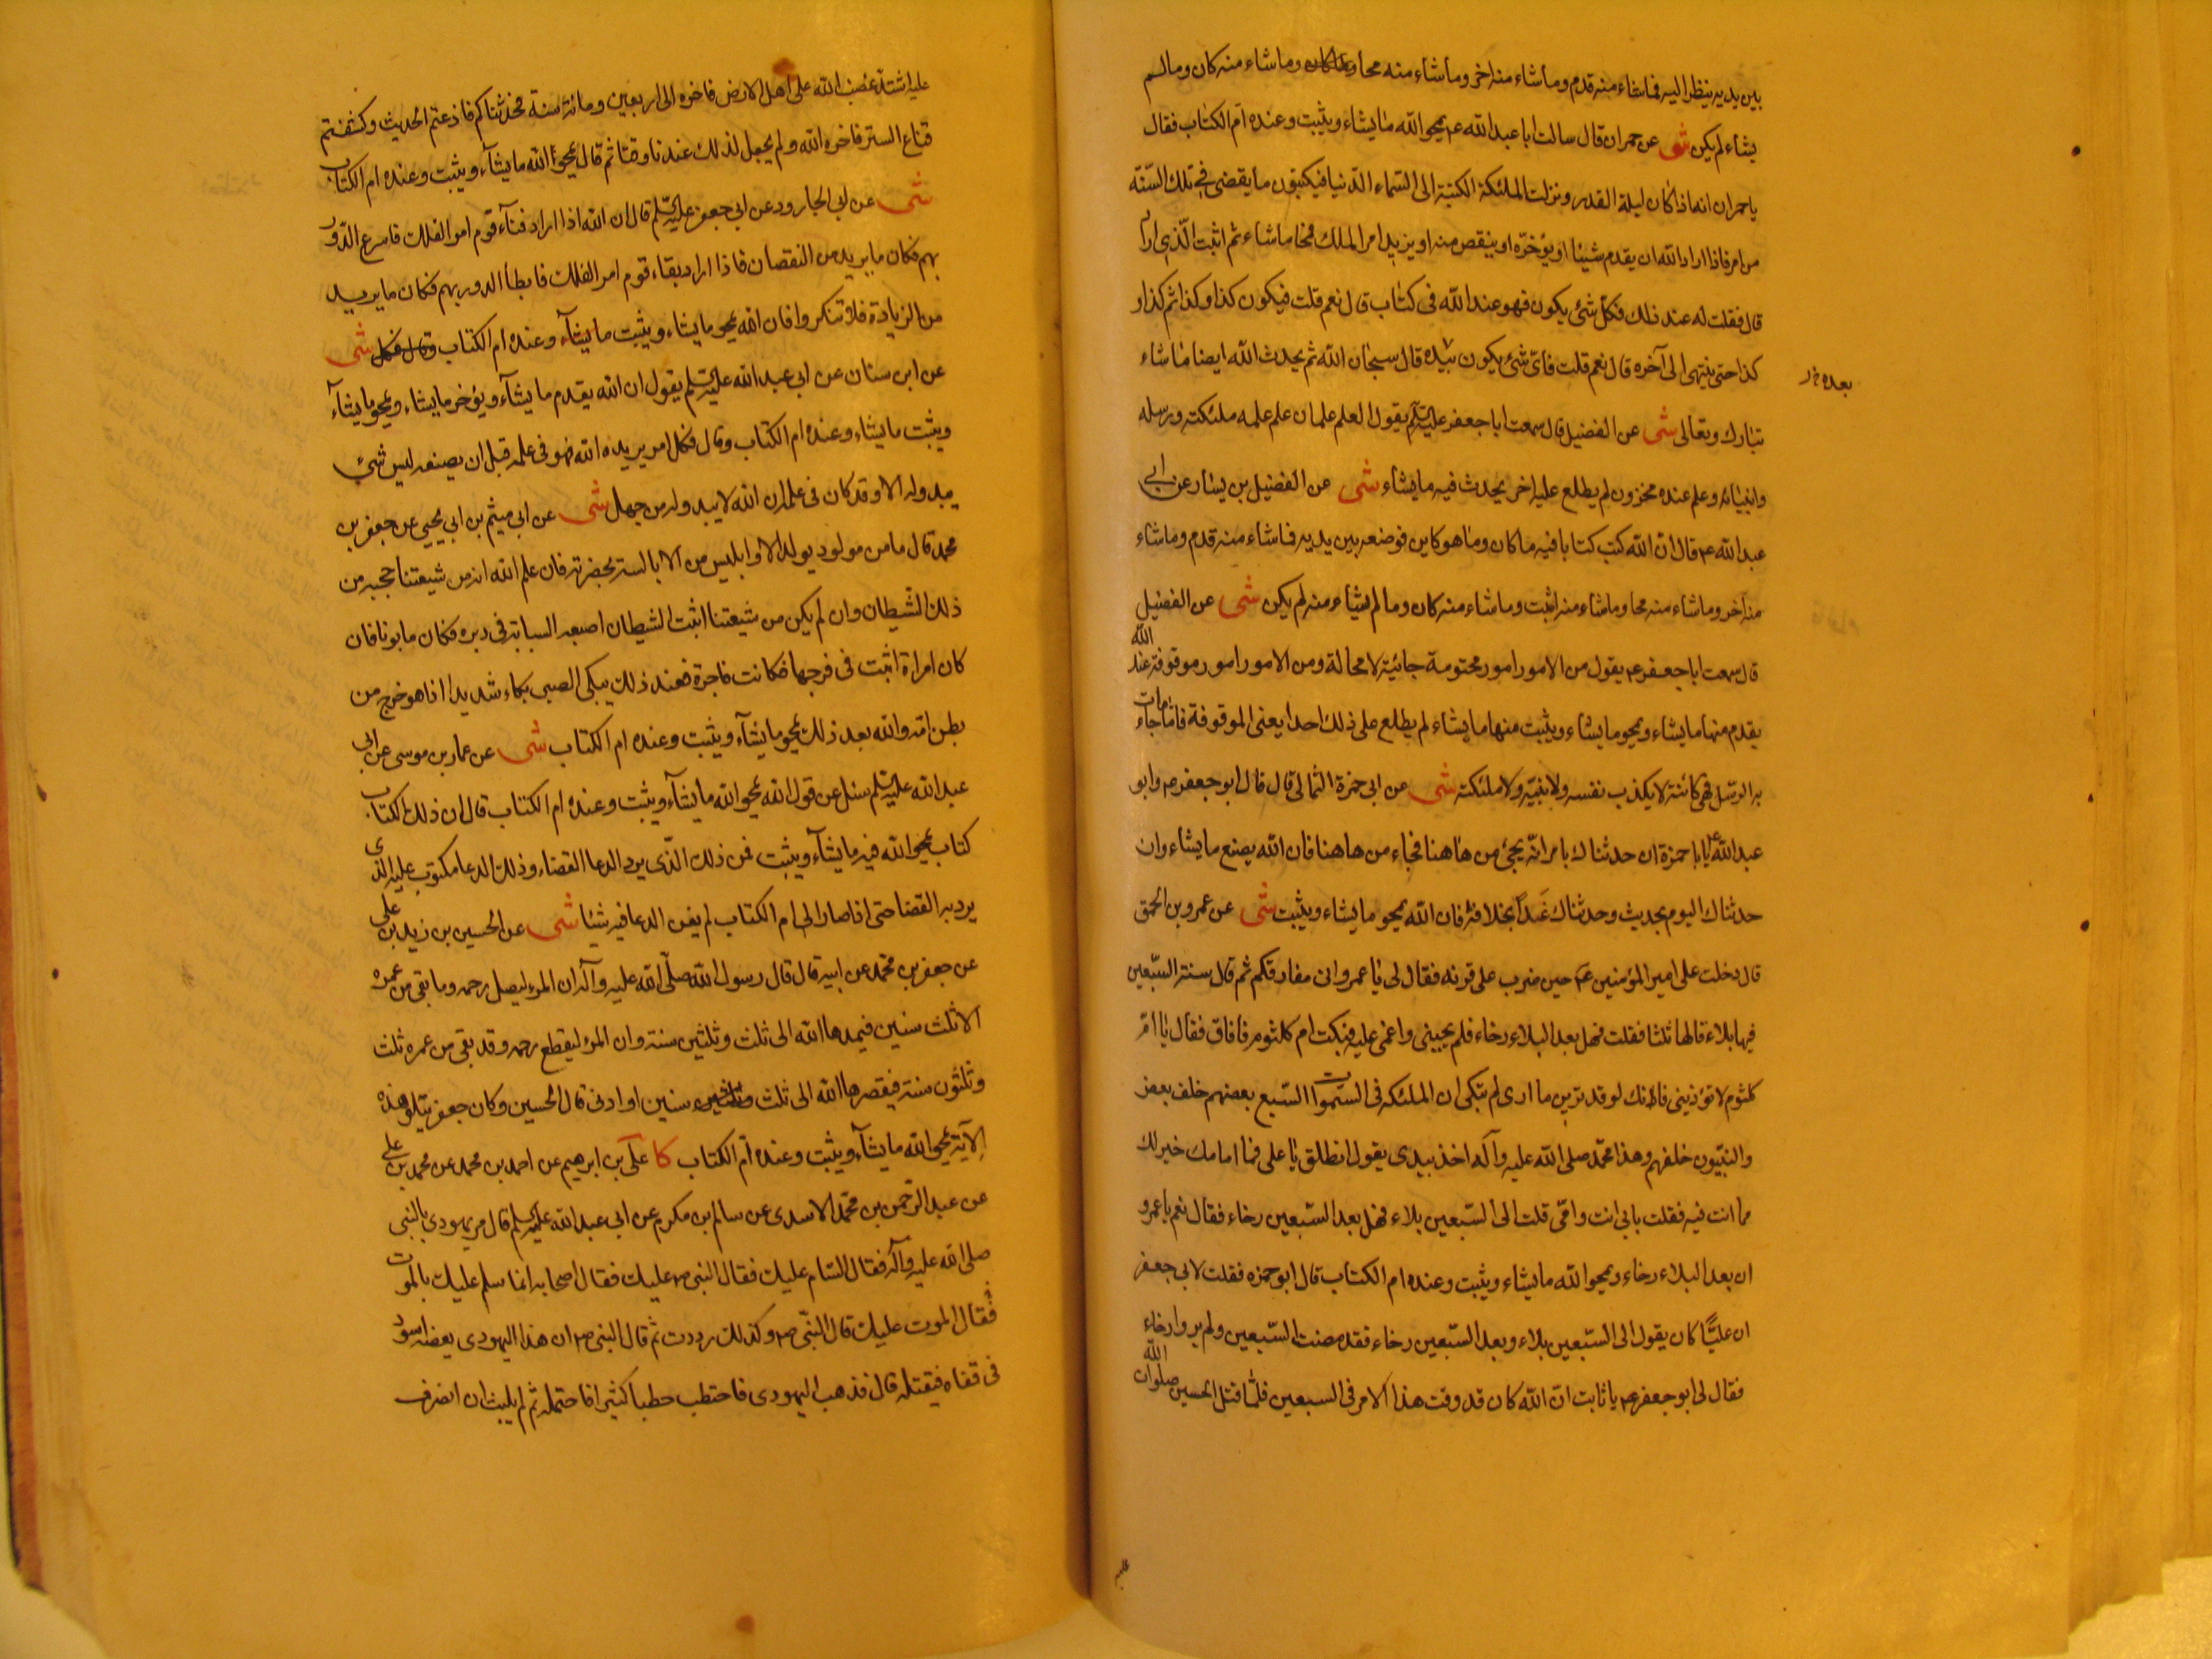 بين يديه ينظر اليه فماشاء منه قدم وماشاء منه اخر وماشاء منه محا وماشاء منه كان ومالم
يشاء لم يكن شى عن حمران قال سالت ابا عبدالله ع يمحو الله مايشاء ويثبت وعنده امّ الكتاب فقال
ياحمران انه اذا كان ليلة القدر ونزلت الملئكة الكتبة الى السّماء الدّنيا فيكتبون مايقضى فى تلك السّنة
من امر فاذا اراد الله ان يقدم شيئا او يؤخرّه او ينقص منه او يزيد امر الملك فمحا ماشاء ثم اثبت الّذى اراد
قال فقلت له عند ذلك فكلّ شئ يكون فهو عند الله فى كتاب قال نعم قلت فيكون كذا وكذا ثم كذا و
كذا حتى ينتهى الى آخره قال نعم قلت فاىّ شئ يكون بيده قال سبحان الله ثم يحدث الله ايضا ماشاء
بعده خ‍ر
تبارك وتعالى شى عن الفضيل قال سمعت ابا جعفر عليه السّلم يقول العلم علمان علم علمه ملئكته ورسله
وانبيائه وعلم عنده مخزون لم يطلع عليه اخر يحدث فيه مايشاء شى عن الفضيل بن يسار عن ابى
عبدالله ع قال انّ الله كتب كتابا فيه ماكان وماهو كاين فوضعه بين يديه فماشاء منه قدم وماشاء
منه اخر وماشاء منه محا وماشاء منه اثبت وماشاء منه كان ومالم يشاء منه لم يكن شى عن الفضيل
قال سمعت اباجعفر ع يقول من الامور امور محتومة جائية لامحالة ومن الامور امور موقوفة عند الله
يقدم منها مايشاء ويمحو مايشاء ويثبت منها مايشاء لم يطلع على ذلك احدا يعنى الموقوفة فامّا ماجاءت
به الرسّل فهى كائنة لايكذب نفسه ولانبيّه ولاملئكته شى عن ابى حمزة الثمالى قال قال ابو جعفر ع وابو
عبدالله ع يا با حمزة ان حدثناك بامر انّه يجئ من هاهنا فجاء من هاهنا فان الله يصنع مايشاء وان
حدثناك اليوم بحديث وحدثناك غدًا بخلافه فان الله يمحو مايشاء ويثبت شى عن عمرو بن الحمق
قال دخلت على امير المؤمنين ع حين ضرب على قرنه فقال لى يا عمرو انى مفارقكم ثم قال سنة السّبعين
فيها بلاء قالها ثلثا فقلت فهل بعد البلاء رخاء فلم يجيبنى واغمى عليه فبكت ام كلثوم فافاق فقال يا امّ
كلثوم لا تؤذينى فانّك لو قد ترين ما ارى لم تبكى ان الملئكه فى السّموات السّبع بعضهم خلف بعض
والنبيّون خلفهم وهذا محمّد صلى الله عليه وآله اخذ بيدى يقول انطلق يا على فما امامك خير لك
مما انت فيه فقلت بابى انت وامّى قلت الى السّبعين بلاء فهل بعد السّبعين رخاء فقال نعم يا عمرو
ان بعد البلاء رخاء ويمحو الله مايشاء ويثبت وعنده ام الكتاب قال ابو حمزه فقلت لابى جعفر
ان عليًّا كان يقول الى السّبعين بلاء وبعد السّبعين رخاء فقد مضت السّبعين ولم يروا رخاء
فقال لى ابو جعفر ع يا ثابت انّ الله كان قد وقت هذا الامر فى السبعين فلمّا قتل الحسين صلوات الله
عليه
عليه اشتدّ غضب الله على اهل الارض فاخره الى اربعين ومائة سنة فحدثناكم فاذعتم الحديث وكشفتم
قناع الستر فاخره الله ولم يجعل لذلك عندنا وقتا ثم قال يمحو الله مايشآء ويثبت وعنده ام الكتاب
شى عن ابى الجارود عن ابى جعفر عليه السّلم قال ان الله اذا اراد فنآء قوم امر الفلك فاسرع الدّور
بهم فكان مايريد من النقصان فاذا اراد بقاء قوم امر الفلك فابطأ الدور بهم فكان مايريد
من الزيادة فلا تنكروا فان الله يمحو مايشاء ويثبت مايشآء وعنده ام الكتاب وقال فكل شى
عن ابن سنان عن ابى عبدالله عليه السّلم يقول ان الله يقدم مايشآء ويؤخر مايشاء ويمحو مايشآء
ويثبت مايشاء وعنده ام الكتاب وقال فكل امر يريده الله فهو فى علمه قبل ان يصنعه ليس شئ
يبدو له الا وقد كان فى علمه ان الله لايبدو له من جهل شى عن ابى ميثم بن ابى يحيى عن جعفر بن
محمد قال مامن مولود يولد الا وابليس من الابالسة بحضرته فان علم الله انه من شيعتنا حجبه من
ذلك الشّيطان وان لم يكن من شيعتنا اثبت الشيطان اصبعه السبابة فى دبره فكان مابونا فان
كان امراة اثبت فى فرجها فكانت فاجرة فعند ذلك يبكى الصبى بكاء شديدا اذا هو خرج من
بطن امّه والله بعد ذلك يمحو مايشآء ويثبت وعنده ام الكتاب شى عن عمار بن موسى عن ابى
عبدالله عليه السّلم سئل عن قول الله يمحو الله مايشآء ويثبت وعنده ام الكتاب قال ان ذلك الكتاب
كتاب يمحو الله فيه مايشآء ويثبت فمن ذلك الّذى يرد الدعا القضاء وذلك الدعا مكتوب عليه الذى
يرد به القضا حتى اذا صار الى ام الكتاب لم يغن الدعا فيه شيئا شى عن الحسين بن زيد بن على
عن جعفر بن محمّد عن ابيه قال قال رسول الله صلّى الله عليه وآله ان المرء ليصل رحمه ومابقى من عمره
الا ثلث سنين فيمدها الله الى ثلث وثلثين سنة وان المرء ليقطع رحمه وقد بقى من عمره ثلث
وثلثون سنة فيقصرها الله الى ثلث سنين او ادنى قال الحسين وكان جعفر يتلو هذه
الآية يمحو الله مايشآء ويثبت وعنده امّ الكتاب كا على بن ابرهيم عن احمد بن محمد عن محمد بن على
عن عبدالرّحمن بن محمّد الاسدى عن سالم بن مكرم عن ابى عبدالله عليه السلم قال مر يهودى بالنبى
صلى الله عليه وآله فقال السّام عليك فقال النبى ص عليك فقال اصحابه انما سلم عليك بالموت
فقال الموت عليك قال النبّى ص وكذلك رددت ثم قال النبى ص ان هذا اليهودى يعضه اسود
فى قفاه فيقتله قال فذهب اليهودى فاحتطب حطبا كثيرا فاحتمله ثم لم يلبث ان انصرف